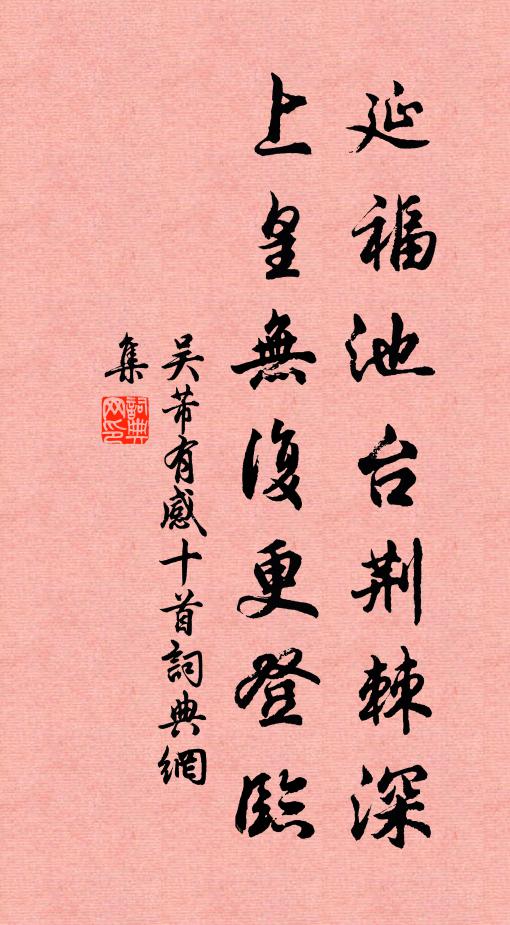 延福池台荆棘深
上皇無復更登臨
吴芾有感十首詞典網
集
詞典
网印